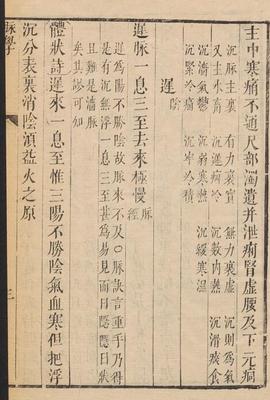 主中寒痛不通尺部濁遺并泄痢腎虛腰及下元痌
沉脈主裏 有力裏實 無力裏虛 沉則為氣
又主水畜 沉遲痼冷 沉數內熱 沉滑痰食
沉濇氣鬱 沉弱寒熱 沉緩寒濕
沉緊冷痛 沉牢冷積
遲 陰
遲脈一息三至去來極慢 脈經
遲為陽不勝陰故脈來不及○脈訣言重手乃得
是有沉無浮一息三至甚為易見而曰隱隱曰狀
且難是濇脈
矣其謬可知
體狀詩遲來一息至惟三陽不勝陰氣血寒但把浮
沉分表裏消陰須益火之原
三